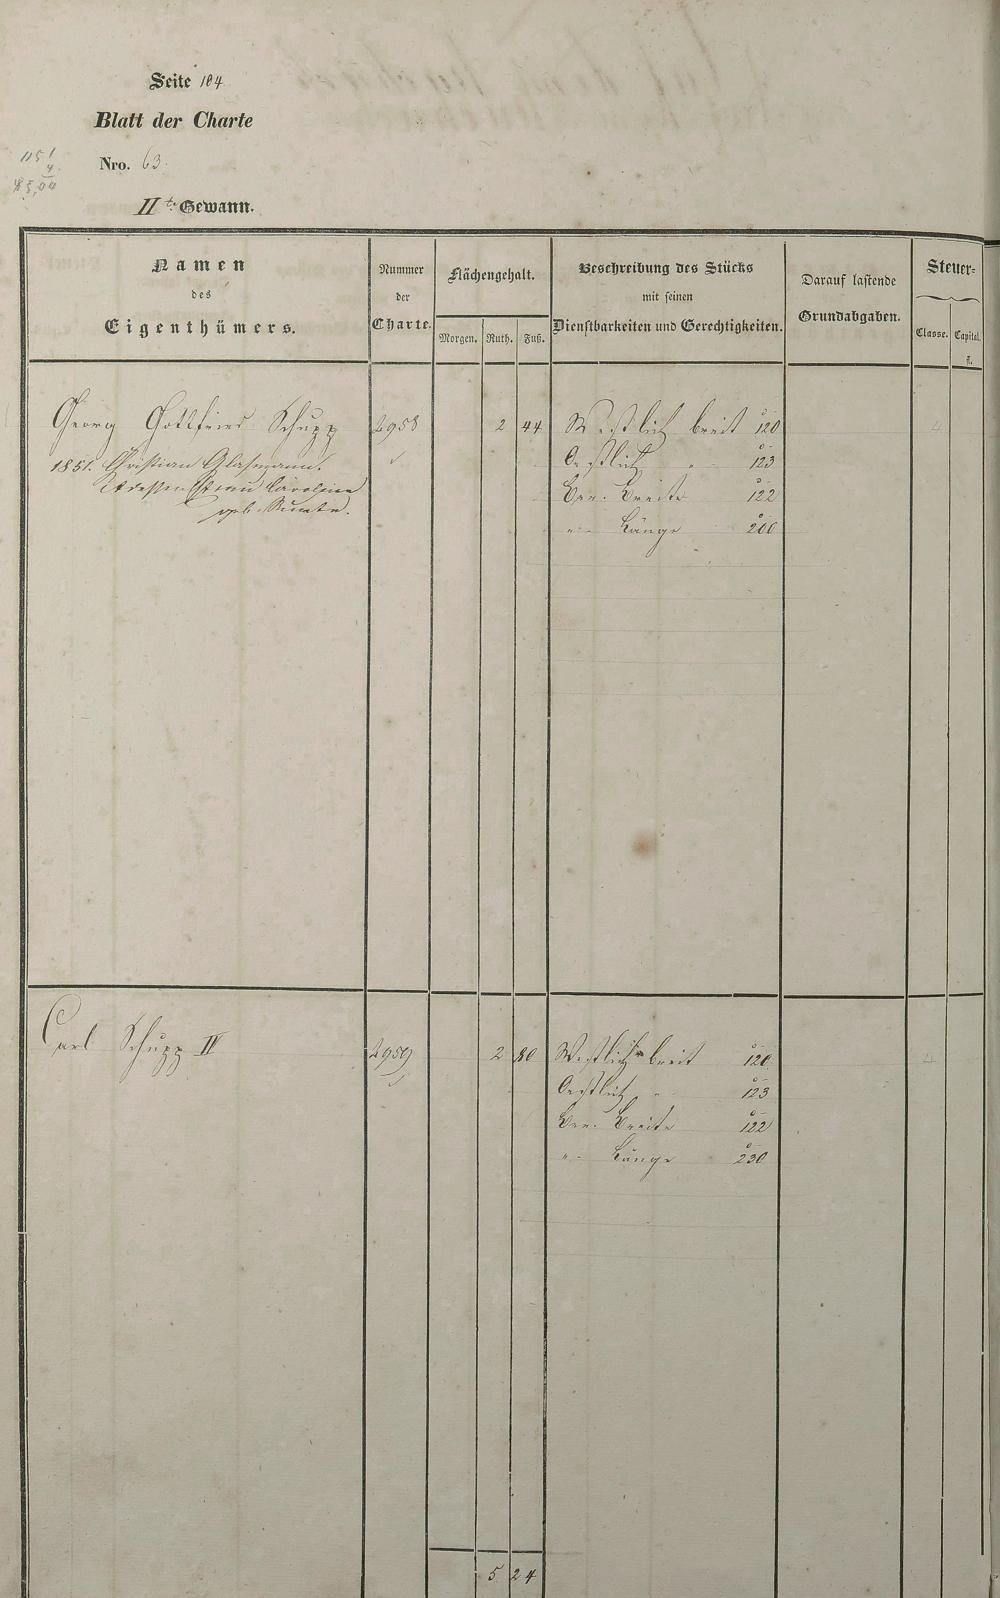 Seite 104
Blatt der Charte
Nro. 63.
1151
4
IIte Gewann.
Namen
des
Eigenthümers.
Nummer
der
Charte.
Flächengehalt.
Morgen. Ruth. Fuß.
Beschreibung des Stücks
mit seinen
Dienstbarkeiten und Gerechtigkeiten.
Darauf lastende
Grundabgaben.
Steuer-
Classe. Capital.
fl.
Georg Gottfried Schupp 2958 2 44 Westlich breit 120
1851. Christian Glasmann. Oestlich " 123
Frau Caroline Ber. Breite 122
geb. " Länge 200
Carl Schupp IV 2959 2 80 Westlich breit 120
Oestlich " 123
Ber. Breite 122
" Länge 230
5 24